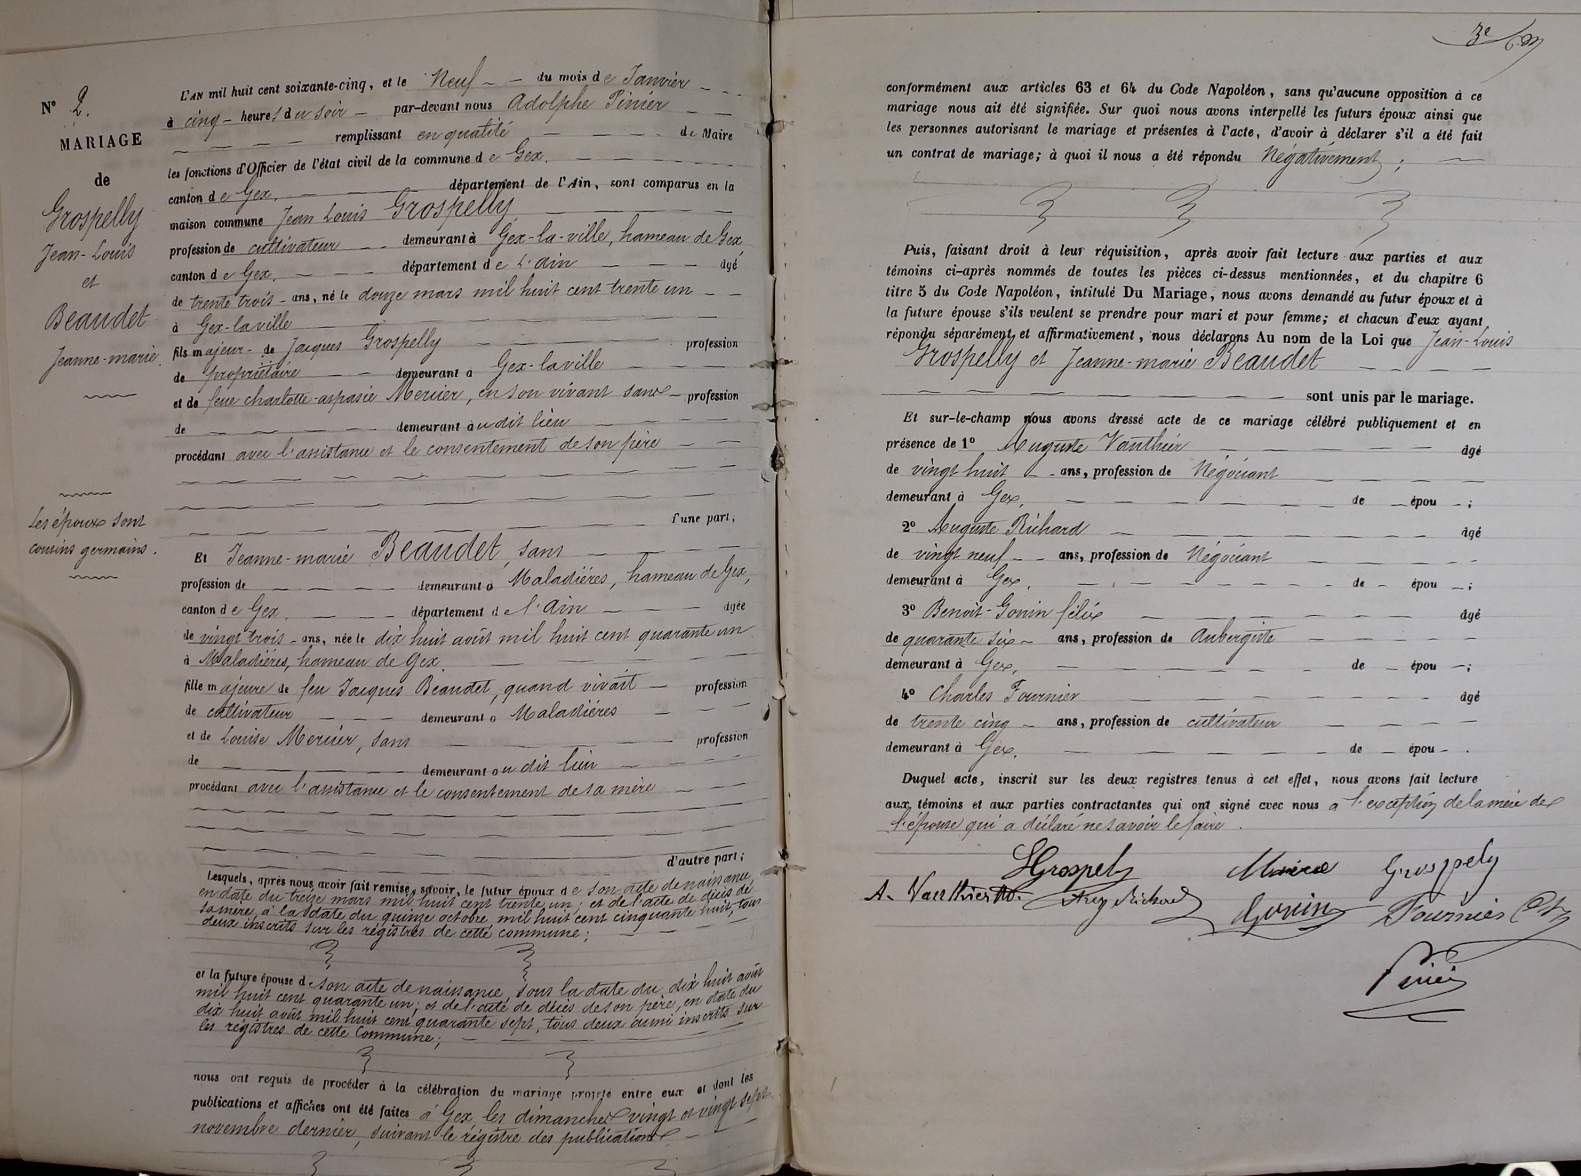 N° 2.
MARIAGE
de
Grospelly
Jean-Louis
et
Beaudet
Jeanne-marie.
Les époux sont
cousins germains.
L'AN mil huit cent soixante-cinq, et le Neuf du mois de Janvier
à cinq heures du soir par-devant nous Adolphe Pinier
remplissant en qualité de Maire
les fonctions d'Officier de l'état civil de la commune de Gex,
canton de Gex, département de l'Ain, sont comparus en la
maison commune Jean Louis Grospelly
profession de cultivateur demeurant à Gex-la-ville, hameau de Gex,
canton de Gex, département de L'ain âgé
de trente trois ans, né le douze mars mil huit cent trente un
à Gex-laville
fils majeur de Jacques Grospelly profession
de propriétaire demeurant à Gex-laville
et de feue charlotte-aspasie Mercier, en son vivant sans profession
de demeurant audit lieu
procédant avec l'assistance et le consentement de son père
d'une part;
Et Jeanne-marie Beaudet, sans
profession de demeurant à Maladières, hameau de Gex,
canton de Gex département de l'Ain âgée
de vingt trois ans, née le dix huit août mil huit cent quarante un
à Maladières, hameau de Gex.
fille majeure de feu Jacques Beaudet, quand vivait profession
de cultivateur demeurant à Maladières
et de Louise Mercier, sans profession
de demeurant au dit lieu
procédant avec l'assistance et le consentement de sa mère
d'autre part;
Lesquels, après nous avoir fait remise, savoir, le futur époux de son acte de naissance,
en date du treize mars mil huit cent trente un; et de l'acte de décès de
sa mère, à la date du quinze octobre mil huit cent cinquante huit, tous
deux inscrits sur les régistres de cette commune;
et la future épouse de son acte de naissance, sous la date du dix huit août
mil huit cent quarante un; et de l'acte de décès de son père, en date du
dix huit août mil huit cent quarante sept, tous deux aussi inscrits sur
les régistres de cette Commune;
nous ont requis de procéder à la célébration du mariage projeté entre eux et dont les
publications et affiches ont été faites à Gex, les dimanches vingt et vingt sept
novembre dernier, suivant le régistre des publications
3e
conformément aux articles 63 et 64 du Code Napoléon, sans qu'aucune opposition à ce
mariage nous ait été signifiée. Sur quoi nous avons interpellé les futurs époux ainsi que
les personnes autorisant le mariage et présentes à l'acte, d'avoir à déclarer s'il a été fait
un contrat de mariage; à quoi il nous a été répondu Négativement;
Puis, faisant droit à leur réquisition, après avoir fait lecture aux parties et aux
témoins ci-après nommés de toutes les pièces ci-dessus mentionnées, et du chapitre 6
titre 5 du Code Napoléon, intitulé Du Mariage, nous avons demandé au futur époux et à
la future épouse s'ils veulent se prendre pour mari et pour femme; et chacun d'eux ayant
répondu séparément et affirmativement, nous déclarons Au nom de la Loi que Jean-Louis
Grospelly et Jeanne-marie Beaudet
sont unis par le mariage.
Et sur-le-champ nous avons dressé acte de ce mariage célébré publiquement et en
présence de 1° Auguste Vauthier âgé
de vingt huit ans, profession de Négociant
demeurant à Gex, de épou ;
2° Auguste Richard âgé
de vingt neuf ans, profession de Négociant
demeurant à Gex. de épou ;
3° Benoit-Gonin félix âgé
de quarante six ans, profession de Aubergiste
demeurant à Gex, de épou ;
4° Charles Fournier âgé
de trente cinq ans, profession de cultivateur
demeurant à Gex. de épou .
Duquel acte, inscrit sur les deux registres tenus à cet effet, nous avons fait lecture
aux témoins et aux parties contractantes qui ont signé avec nous à l'exception de la mère de
l'épouse qui a déclaré ne savoir le faire.
Grospely Grosppely
A. Vauthier Aug Richard Gonin Fournier Ch
Pinier